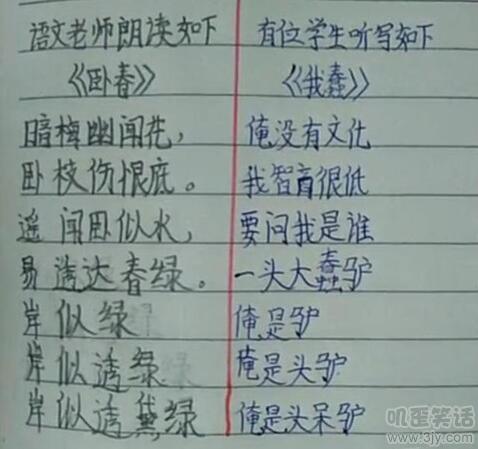 语文老师朗读如下
《卧春》
暗梅幽闻花，
卧枝伤恨底。
遥闻卧似水，
易透达春绿。
岸似绿
岸似透绿
岸似透黛绿
有位学生听写如下
《我蠢》
俺没有文化
我智商很低
要问我是谁
一头大蠢驴
俺是驴
俺是头驴
俺是头呆驴
叽歪笑话
www.3jy.com